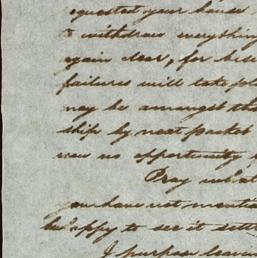 equested your house
to withdraw everything
again clear, for
failures will take pla
may be amongst the
ship by next packet
was no opportunity
Pray what
you have not mentio
be happy to see it settl
I purpose leavin